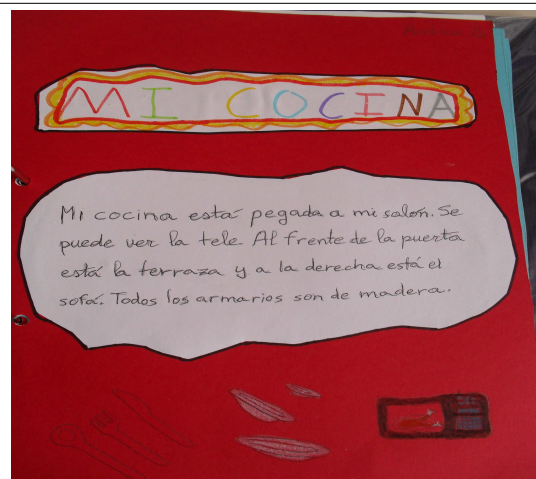 MI COCINA
Mi cocina está pegada a mi salón. Se
puede ver la tele. Al frente de la puerta
está la terraza y a la derecha está el
sofá. Todos los armarios son de madera.